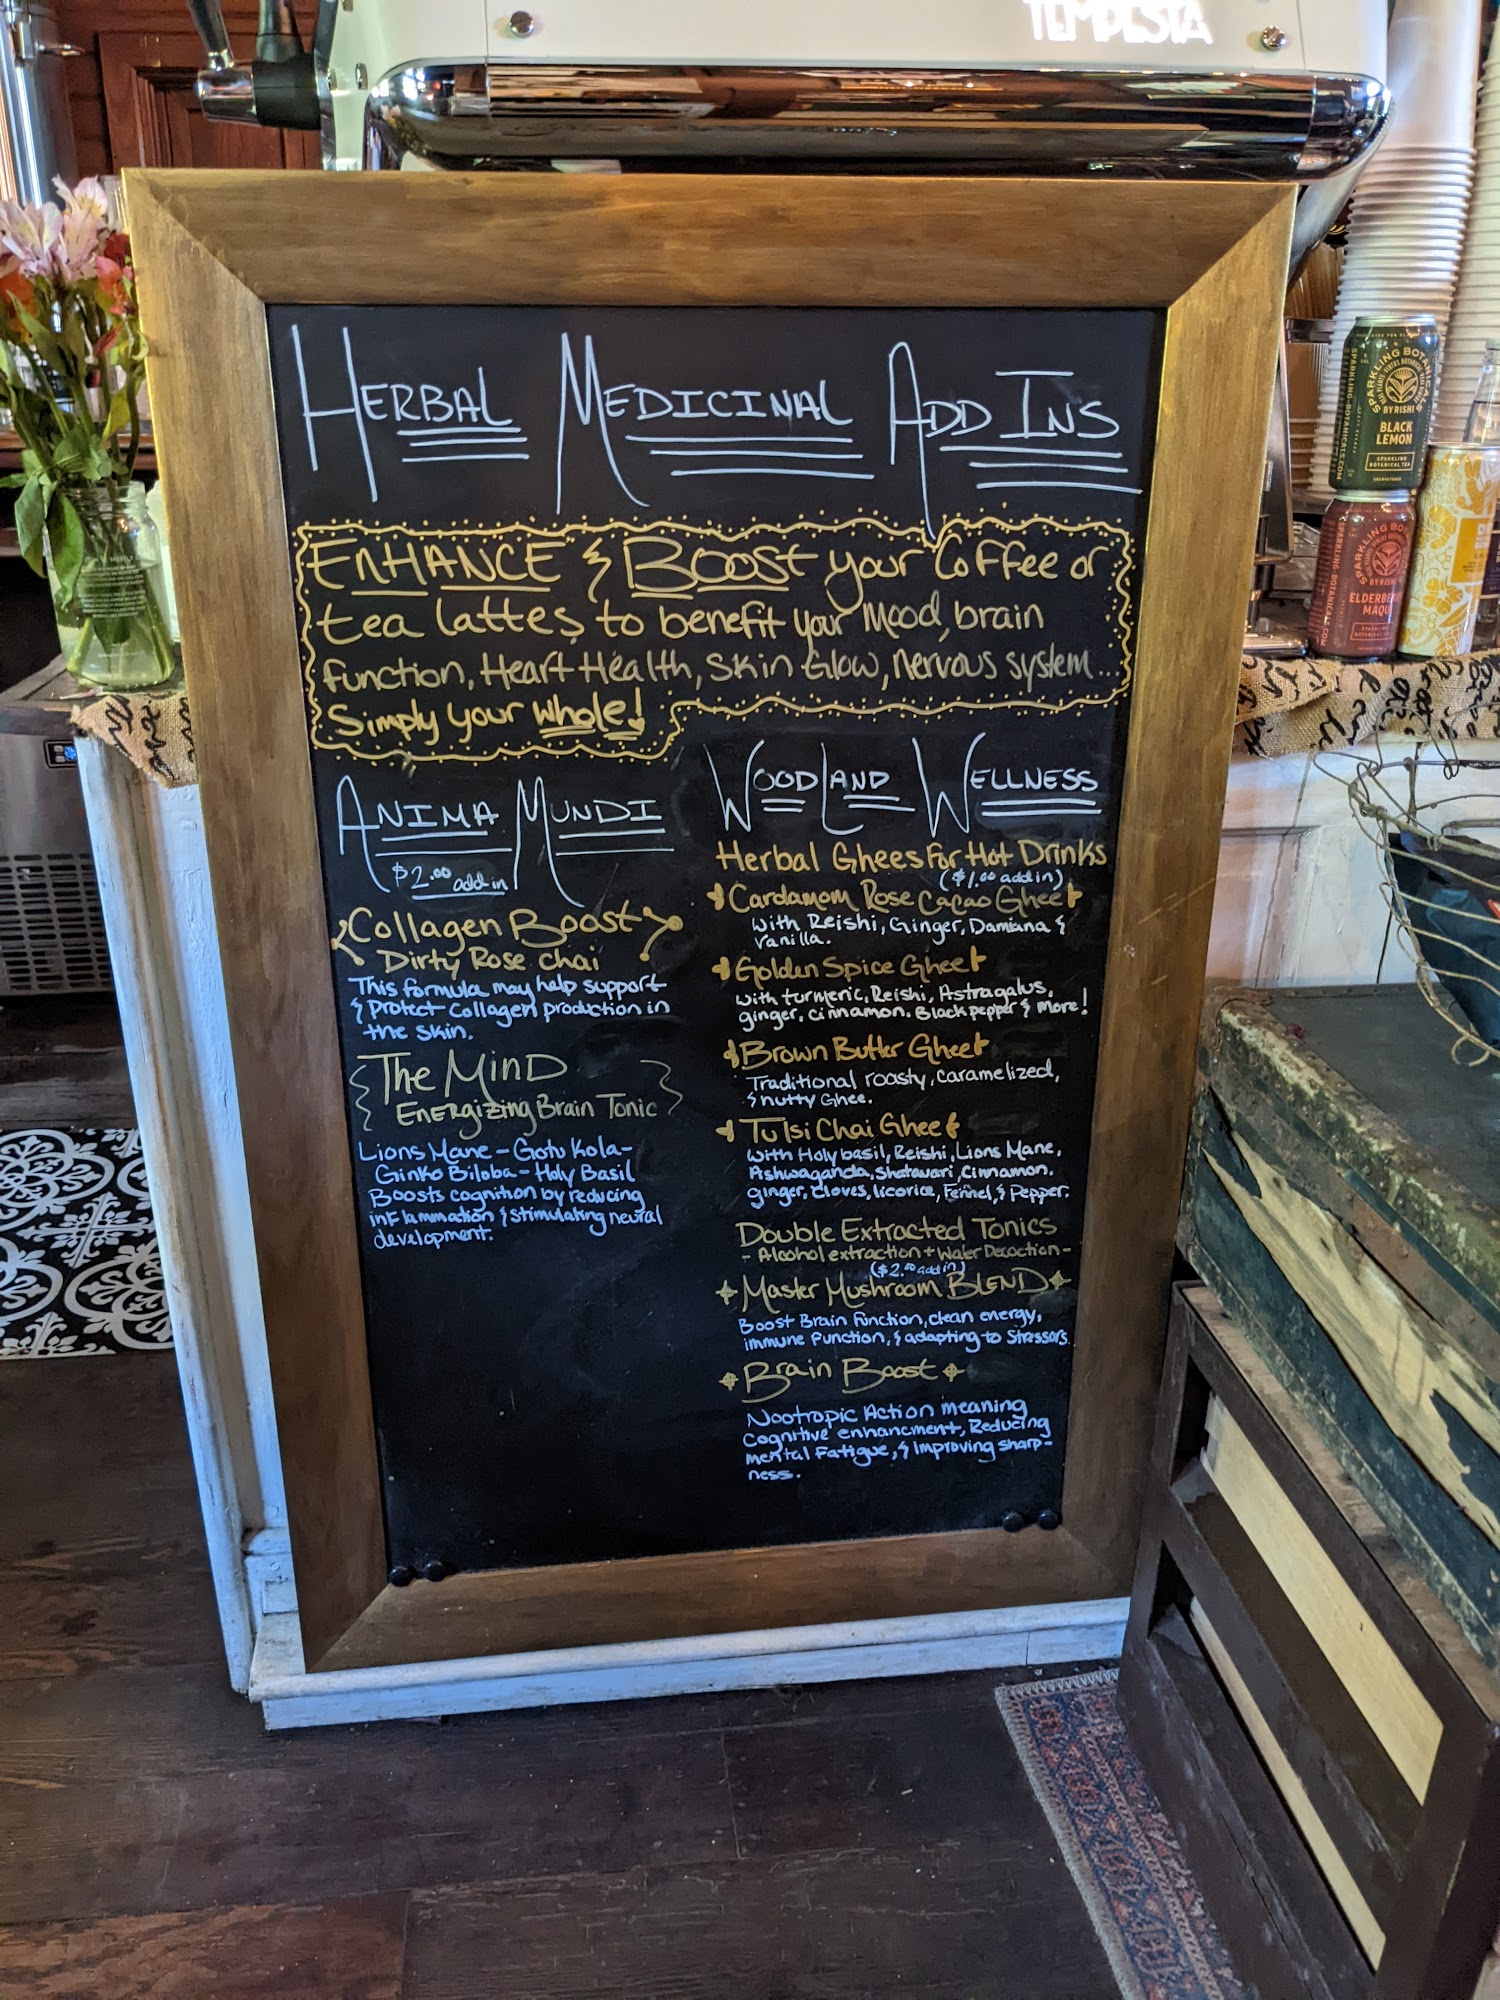 TEMPESTA
HERBAL MEDICINAL ADD INS
ENHANCE & BOOST your Coffee or
tea lattes to benefit your Mood, brain
function, Heart Health, Skin Glow, nervous system...
Simply your whole!
ANIMA MUNDI
$2.00 add in
Collagen Boost
Dirty Rose Chai
This formula may help support
& Protect Collagen production in
the skin.
The MIND
Energizing Brain Tonic
Lions Mane - Gotu Kola -
Ginko Biloba - Holy Basil
Boosts cognition by reducing
inflammation & stimulating neural
development.
WOODLAND WELLNESS
Herbal Ghees for Hot Drinks
($1.00 add in)
Cardamom Rose Cacao Ghee
with Reishi, Ginger, Damiana &
Vanilla.
Golden Spice Ghee
with turmeric, Reishi, Astragalus,
ginger, cinnamon. Black pepper & more!
Brown Butter Ghee
Traditional roasty, caramelized,
& nutty Ghee.
Tulsi Chai Ghee
with Holy basil, Reishi, Lions Mane,
Ashwaganda, Shatavari, cinnamon.
ginger, cloves, licorice, Fennel, & Pepper.
Double Extracted Tonics
- Alcohol extraction + Water Decoction -
($2.00 add in)
Master Mushroom BLEND
Boost Brain Function, clean energy,
immune Function, & adapting to Stressors.
Brain Boost
Nootropic Action meaning
Cognitive enhancment, Reducing
mental Fatigue, & improving sharp-
ness.
SPARKLING BOTANICALS
BY RISHI
BLACK
LEMON
SPARKLING
BOTANICAL TEA
SPARKLING BOTANICALS
BY RISHI
ELDERBE
MAQU